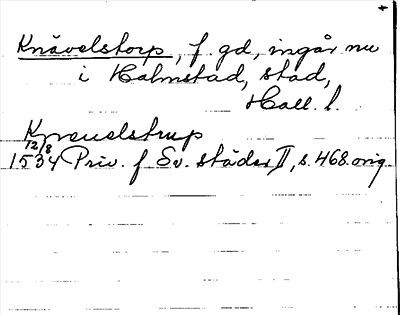 Knävelstorp, f. gd, ingår nu
i Halmstad, stad,
Hall. l.
Knreuelstrup
12/8
1534 Priv. f Sv. städer II, s. 468. orig.